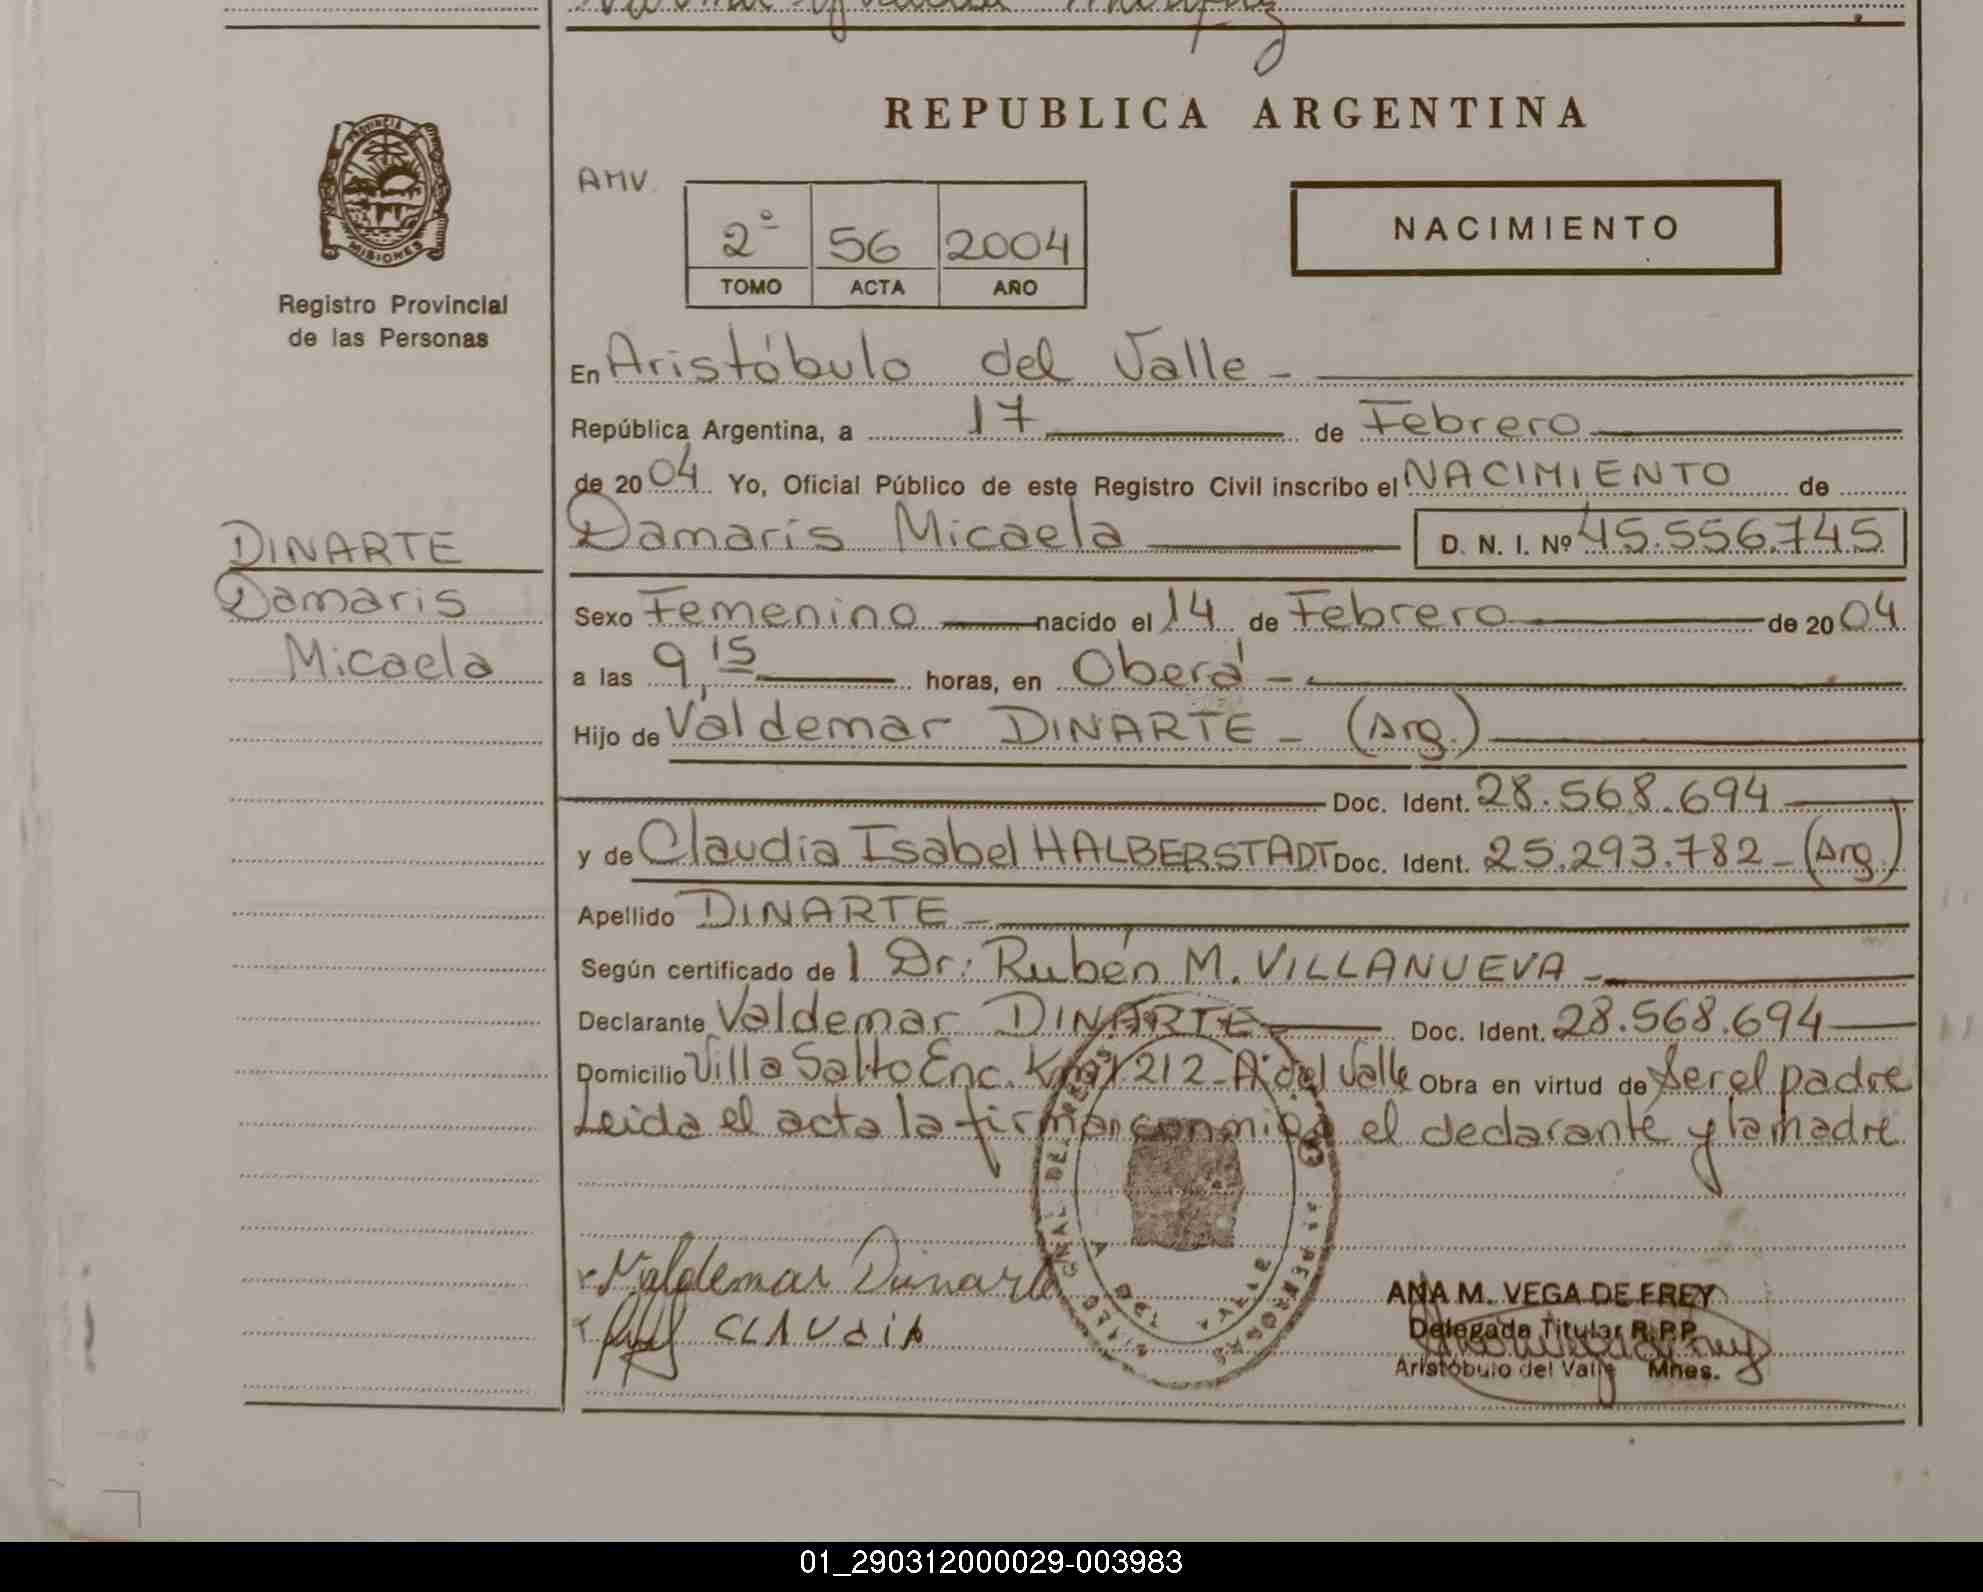 REPUBLICA ARGENTINA
PROVINCIA
MISIONES
Registro Provincial
de las Personas
AMV.
2º 56 2004
TOMO ACTA AÑO
NACIMIENTO
En Aristóbulo del Valle -
República Argentina, a 17 de Febrero
de 2004 Yo, Oficial Público de este Registro Civil inscribo el NACIMIENTO de
Damaris Micaela D. N. I. Nº 45.556.745
DINARTE
Damaris
Micaela
Sexo Femenino nacido el 14 de Febrero de 2004
a las 9,15 horas, en Oberá -
Hijo de Valdemar DINARTE - (Arg.)
Doc. Ident. 28.568.694
y de Claudia Isabel HALBERSTADT Doc. Ident. 25.293.782 - (Arg.)
Apellido DINARTE -
Según certificado de l Dr: Rubén M. VILLANUEVA -
Declarante Valdemar DINARTE Doc. Ident. 28.568.694
Domicilio Villa Salto Enc. Km 1212 - A. del Valle Obra en virtud de Ser el padre
Leida el acta la firman conmigo el declarante y la madre
Valdemar Dinarte
CLAUdiA
ANA M. VEGA DE FREY
Delegada Titular R.P.P.
Aristóbulo del Valle Mnes.
01_290312000029-003983